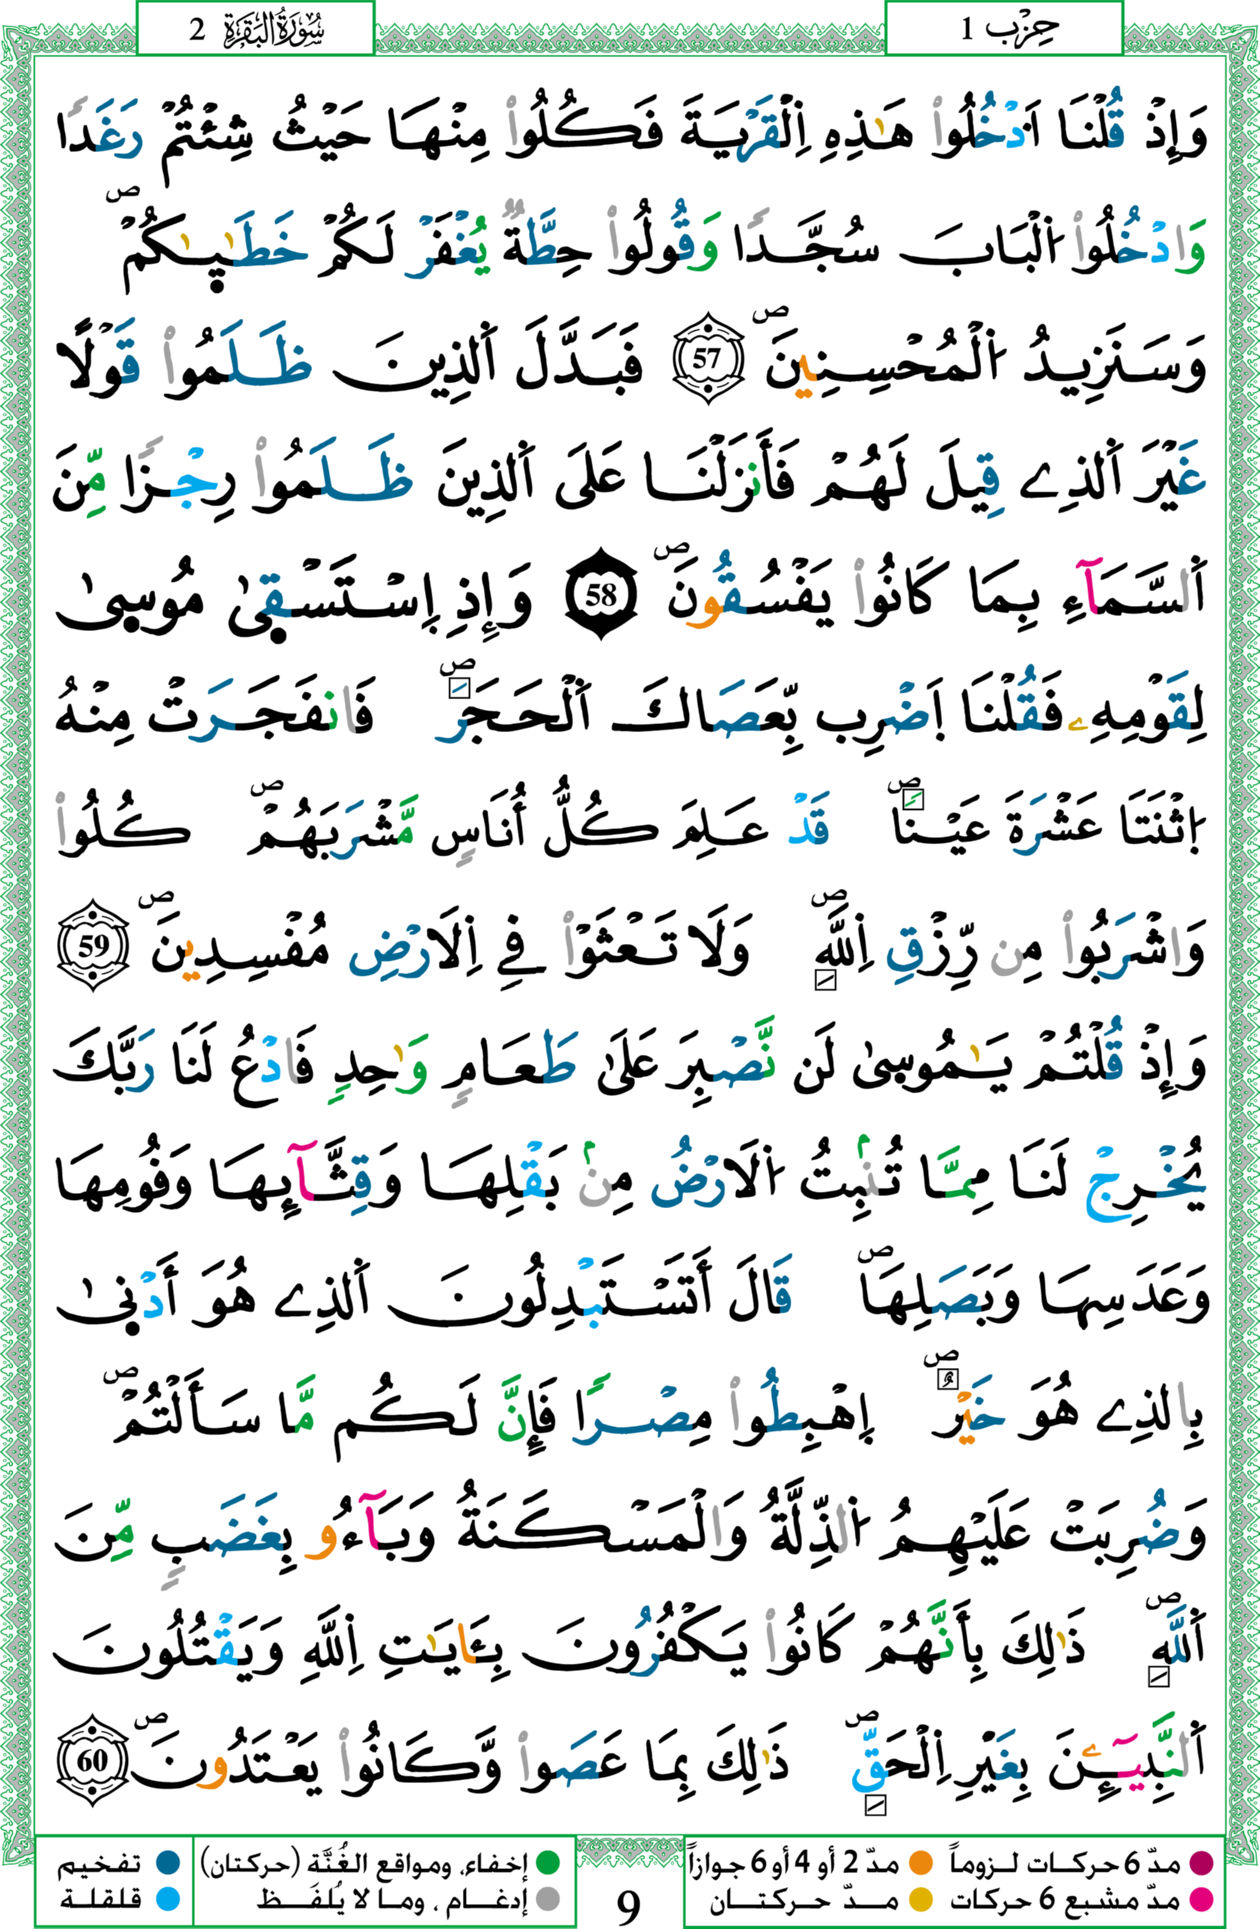 حِزْب 1
سُورَةُ الْبَقَرَةِ 2
وَإِذْ قُلْنَا اَدْخُلُواْ هَٰذِهِ اِلْقَرْيَةَ فَكُلُواْ مِنْهَا حَيْثُ شِئْتُمْ رَغَداً
وَادْخُلُواْ اُلْبَابَ سُجَّداً وَقُولُواْ حِطَّةٌ يُغْفَرْ لَكُمْ خَطَٰيَٰكُمْۖ
وَسَنَزِيدُ اُلْمُحْسِنِينَۖ 57 فَبَدَّلَ اَلذِينَ ظَلَمُواْ قَوْلاً
غَيْرَ اَلذِے قِيلَ لَهُمْ فَأَنزَلْنَا عَلَى اَلذِينَ ظَلَمُواْ رِجْزاً مِّنَ
اَلسَّمَآءِ بِمَا كَانُواْ يَفْسُقُونَۖ 58 وَإِذِ اِسْتَسْقىٰ مُوسىٰ
لِقَوْمِهِۦ فَقُلْنَا اَضْرِب بِّعَصَاكَ اَلْحَجَرَۖ فَانفَجَرَتْ مِنْهُ
اُثْنَتَا عَشْرَةَ عَيْناًۖ قَدْ عَلِمَ كُلُّ أُنَاسٍ مَّشْرَبَهُمْۖ كُلُواْ
وَاشْرَبُواْ مِن رِّزْقِ اِللَّهِۖ وَلَا تَعْثَوْاْ فِے اِلَارْضِ مُفْسِدِينَۖ 59
وَإِذْ قُلْتُمْ يَٰمُوسىٰ لَن نَّصْبِرَ عَلَىٰ طَعَامٍ وَٰحِدٍ فَادْعُ لَنَا رَبَّكَ
يُخْرِجْ لَنَا مِمَّا تُنۢبِتُ اُلَارْضُ مِنۢ بَقْلِهَا وَقِثَّآئِهَا وَفُومِهَا
وَعَدَسِهَا وَبَصَلِهَاۖ قَالَ أَتَسْتَبْدِلُونَ اَلذِے هُوَ أَدْنىٰ
بِالذِے هُوَ خَيْرٌۖ اِهْبِطُواْ مِصْراً فَإِنَّ لَكُم مَّا سَأَلْتُمْۖ
وَضُرِبَتْ عَلَيْهِمُ اُلذِّلَّةُ وَالْمَسْكَنَةُ وَبَآءُو بِغَضَبٍ مِّنَ
اَللَّهِۖ ذَٰلِكَ بِأَنَّهُمْ كَانُواْ يَكْفُرُونَ بِـَٔايَٰتِ اِللَّهِ وَيَقْتُلُونَ
اَلنَّبِيٓـِٕينَ بِغَيْرِ اِلْحَقِّۖ ذَٰلِكَ بِمَا عَصَواْ وَّكَانُواْ يَعْتَدُونَۖ 60
مدّ 6 حركات لـزوماً مدّ 2 أو 4 أو 6 جوازاً
مدّ مشبع 6 حركات مـدّ حـركتـان
9
إخفاء، ومواقع الغُنَّة (حركتان)
إدغـام ، ومـا لا يُلفَـظ
تفخيم
قلقلة